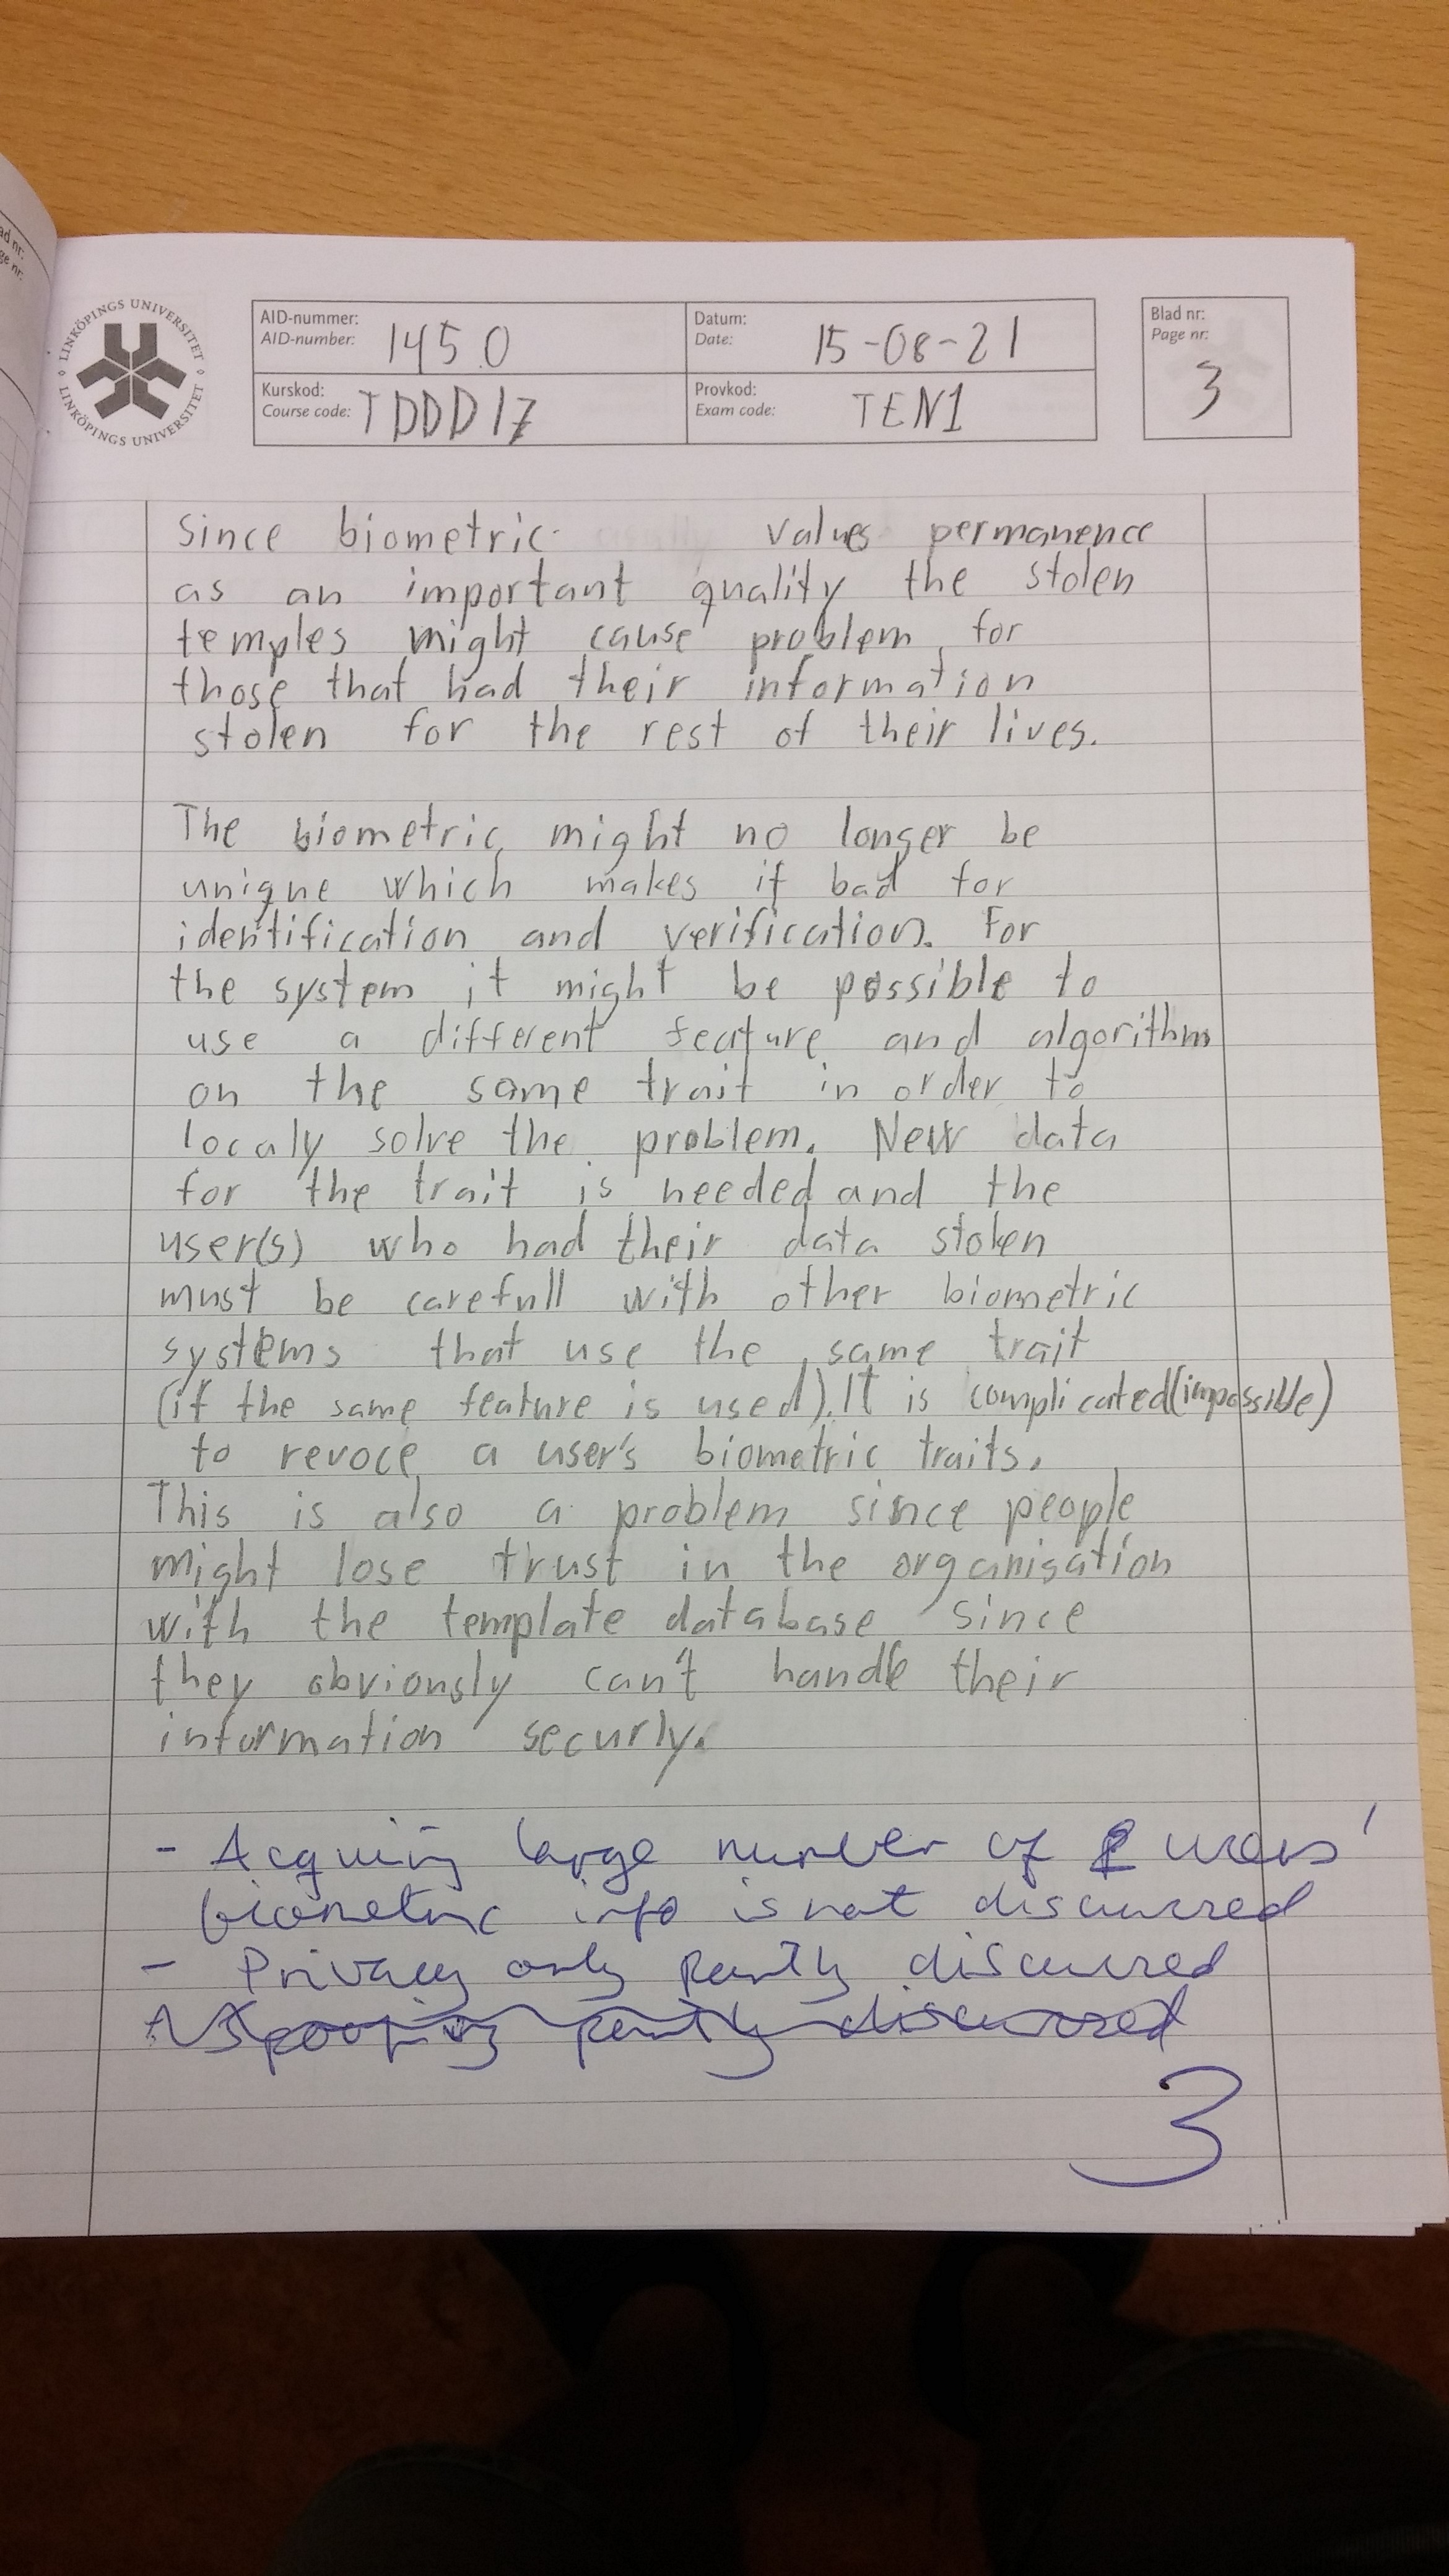 ad nr:
ge nr:
LINKÖPINGS UNIVERSITET
LINKÖPINGS UNIVERSITET
AID-nummer:
AID-number: 1450
Datum:
Date: 15-08-21
Blad nr:
Page nr:
3
Kurskod:
Course code: TDDD17
Provkod:
Exam code: TEN1
Since biometric values permanence
as an important quality the stolen
temples might cause problem for
those that had their information
stolen for the rest of their lives.
The biometric might no longer be
unique which makes it bad for
identification and verification. For
the system it might be possible to
use a different feature and algorithm
on the same trait in order to
localy solve the problem. New data
for the trait is needed and the
user(s) who had their data stolen
must be carefull with other biometric
systems that use the same trait
(if the same feature is used). It is complicated(impossible)
to revoce a user's biometric traits.
This is also a problem since people
might lose trust in the organisation
with the template database since
they obviously can't handle their
information securly.
- Acquiring large number of users'
biometric info is not discussed
- Privacy only partly discussed
Spoofing partly discussed
3